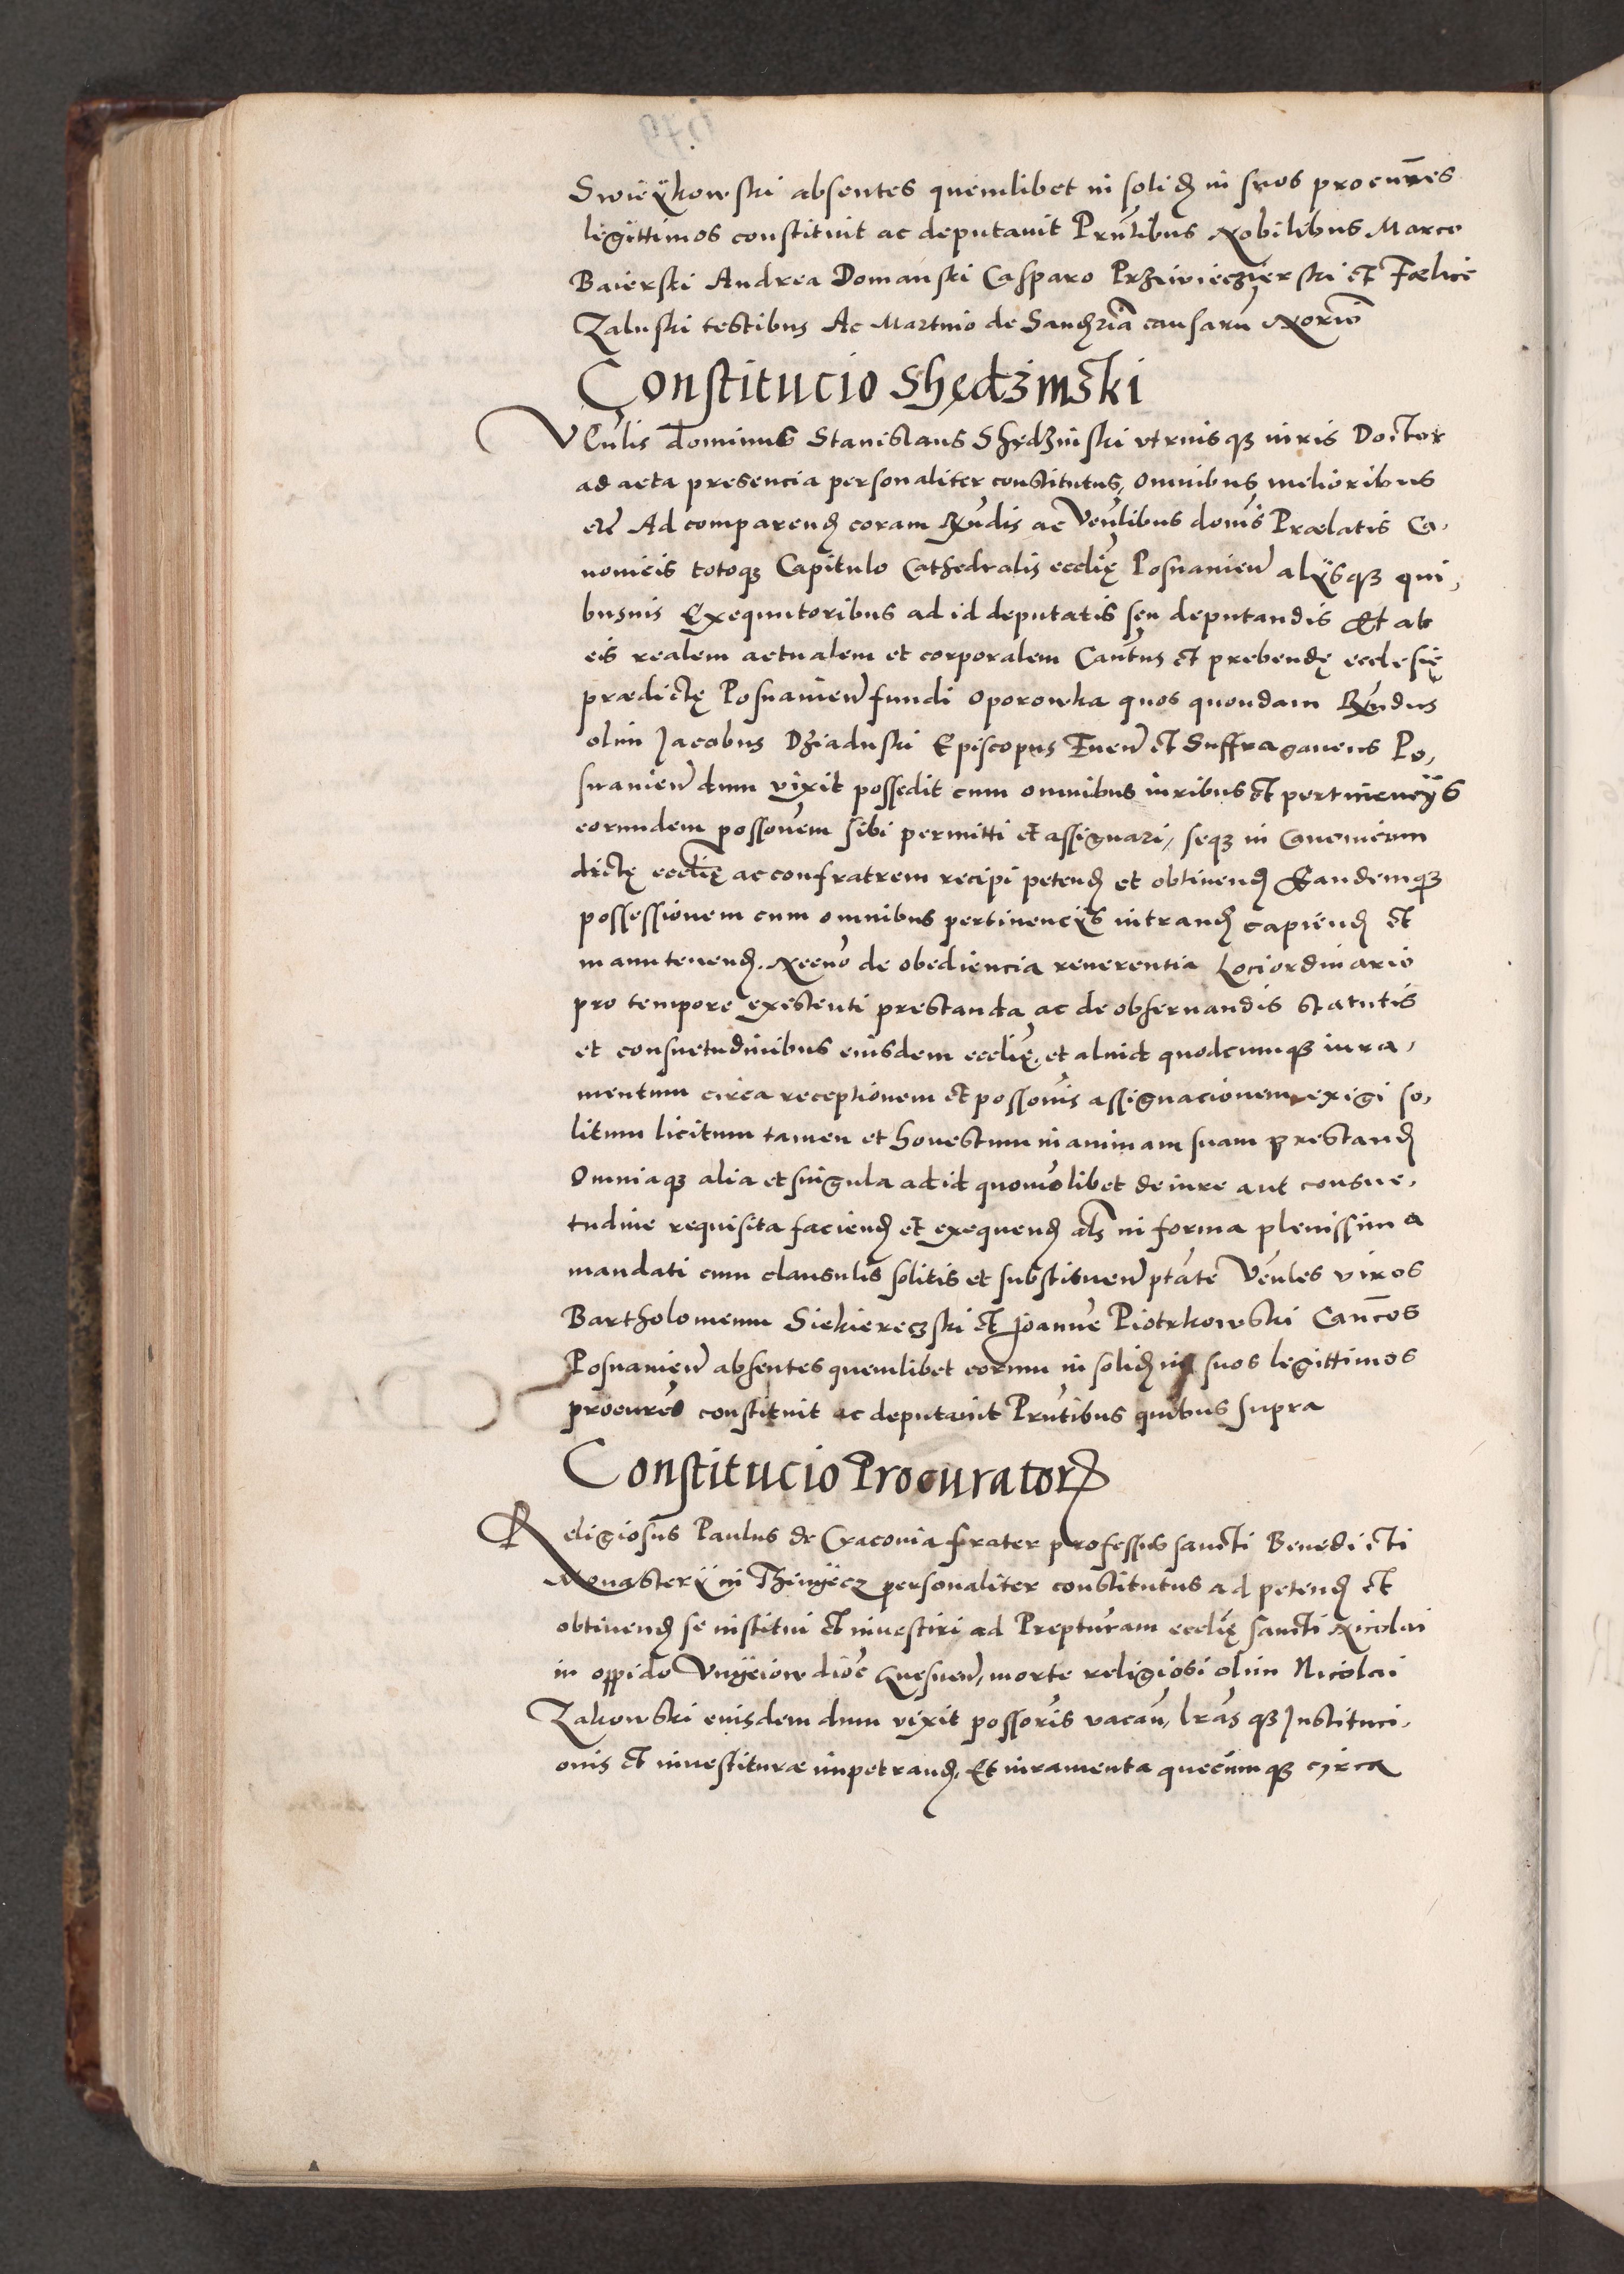 Swiėÿkowski absentes quemlibet in solid in suos procures
legittimos constituit ac deputauit Prntibus Nobilibus Marco
Baierski Andrea Domanski Casparo Przeiwieczierski et Fœlice
Zaluski testibus Ac Martino de causaru Norio
Constitucio Shędzinski
VEnlis dominus Stanislaus Shędzinski vtriusqȝ iuris Doctor
ad acta presencia personaliter constitutus, omnibus melioribus
etc Ad comparend coram Rndis ac Venlibus donis Prælatis Ca,
nonicis totoqȝ Capitulo Cathedralis ecclię Posnanien alÿsqȝ qui,
busuis Exequutoribus ad id deputatis seu deputandis Et ab
eis realem actualem et corporalem Cantus et prebendę ecclesię
prædictę Posnanien fundi Oporowka quos quondam Rndus
olim Jacobus Dziaduski Episcopus Enen et Suffraganeus Po,
snanien dum vixit possedit cum omnibus iuribus et pertinencÿs
eorundem possonem sibi permitti et assignari, seqȝ in Canonicum
dictę ecclię ac confratrem recipi petend et obtinend Eandemqȝ
possessionem cum omnibus pertinencÿs intrand capiend et
manutenend. Necno de obediencia reuerentia Loci ordinario
pro tempore existenti prestanda ac de obseruandis statutis
et consuetudinibus eiusdem ecclię, et aliud quodcumqȝ iura,
mentum circa receptionem et possonis assignacionem exigi so,
litum licitum tamen et honestum in animam suam prestand
Omniaqȝ alia et singula ad id quomolibet de iure aut consue,
tudine requisita faciend et exequend als in forma plenissima
mandati cum clausulis solitis et substituen ptate Venles viros
Bartholomeum Siekiereczski et Joanne Piotrkowski Cancos
Posnanien absentes quemlibet eorum in solid in suos legittimos
procures constituit ac deputauit Prntibus quibus supra
Constitucio Procurator
Religiosus Paulus de Cracouia frater professus sancti Benedicti
Monasterÿ in Thinyecz personaliter constitutus ad petend et
obtinend se institui et inuestiri ad Prepturam ecclię sancti Nicolai
in oppido Vnÿeiow dioc Gnesnen, morte religiosi olim Nicolai
Zakowski eiusdem dum vixit possoris vacan, lrasqȝ Instituci,
onis et inuestituræ impetrand, Et iuramenta quecumqȝ circa